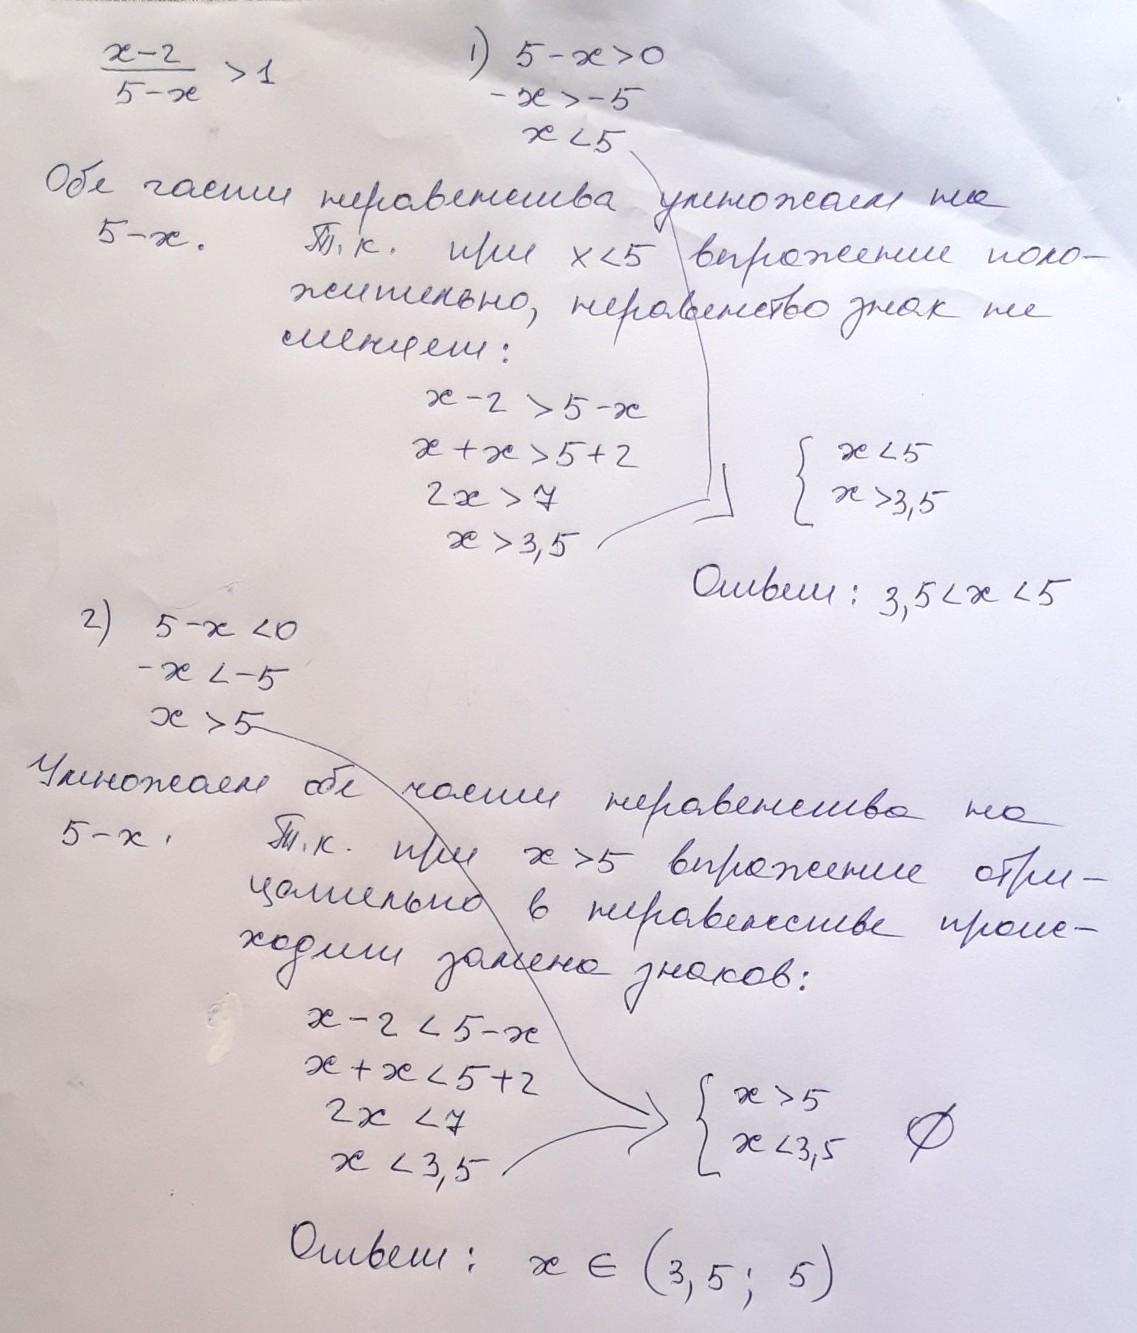 x-2
5-x
>1
1) 5-x>0
-x>-5
x<5
Обе части неравенства умножаем на
5-x. Т.к. при x<5 выражение поло-
жительно, неравенство знак не
меняет:
x-2>5-x
x+x>5+2
2x>7
x>3,5
{ x<5
x>3,5
Ответ: 3,5<x<5
2) 5-x<0
-x<-5
x>5
Умножаем обе части неравенства на
5-x. Т.к. при x>5 выражение отри-
цательно в неравенстве проис-
ходит замена знаков:
x-2<5-x
x+x<5+2
2x<7
x<3,5
{ x>5
x<3,5 ∅
Ответ: x ∈ (3,5; 5)